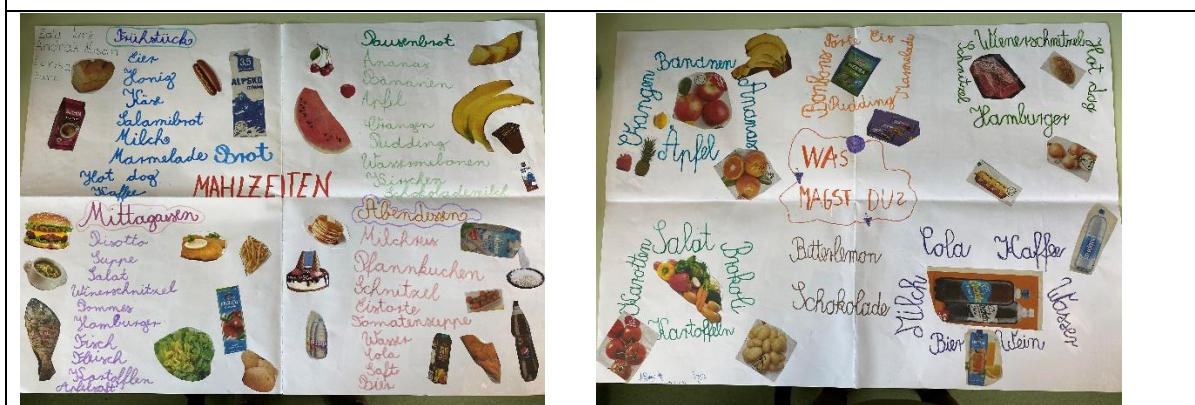 Frühstück
Eier
Honig
Käse
Salamibrot
Milch
Marmelade Brot
Hot dog
Kaffee
3,5
ALPSKO
Pausenbrot
Ananas
Bananen
Apfel
Orangen
Pudding
Wassermelonen
Kirschen
Schokolademilch
MAHLZEITEN
Mittagessen
Risotto
Suppe
Salat
Winerschnitzel
Pommes
Hamburger
Fisch
Fleisch
Kartofflen
Apfelsaft
Abendessen
Milchreis
Pfannkuchen
Schnitzel
Eistorte
Tomatensuppe
Wasser
Cola
Saft
Bier
Orangen
Bananen
Ananas
Äpfel
Bonbons
Torte
Eis
Marmelade
Pudding
Wienerschnitzel
Schnitzel
Hot dog
Hamburger
WAS
MAGST DU?
Karotten
Salat
Brokoli
Kartoffeln
Bitterlemon
Schokolade
Cola
Kaffe
Milch
Wasser
Bier
Wein